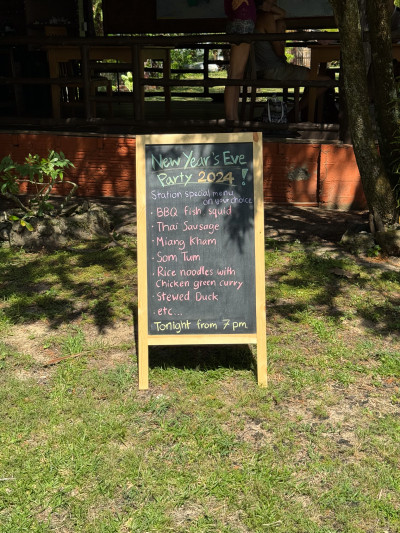 New Year's Eve
Party 2024 !
Station special menu
on your choice
· BBQ fish squid
· Thai Sausage
· Miang Kham
· Som Tum
· Rice noodles with
Chicken green curry
· Stewed Duck
· etc...
Tonight from 7 pm